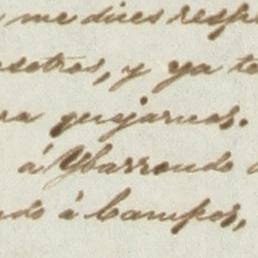 me dices resp
sotros, y ya te
ra quejarnos.
á Ybarrondo
ndo á Campos,